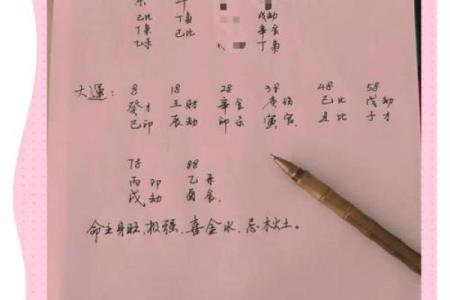 己比 丁枭 戊劫
丁枭 己比 辛食
乙杀 丁枭
大運: 8 18 28 38 48 58
癸才 壬财 辛食 庚伤 己比 戊劫
巳印 辰劫 卯杀 寅官 丑比 子才
78 88
丙印 乙杀
戌劫 酉食
命主身旺、极强、喜金水、忌木火土。